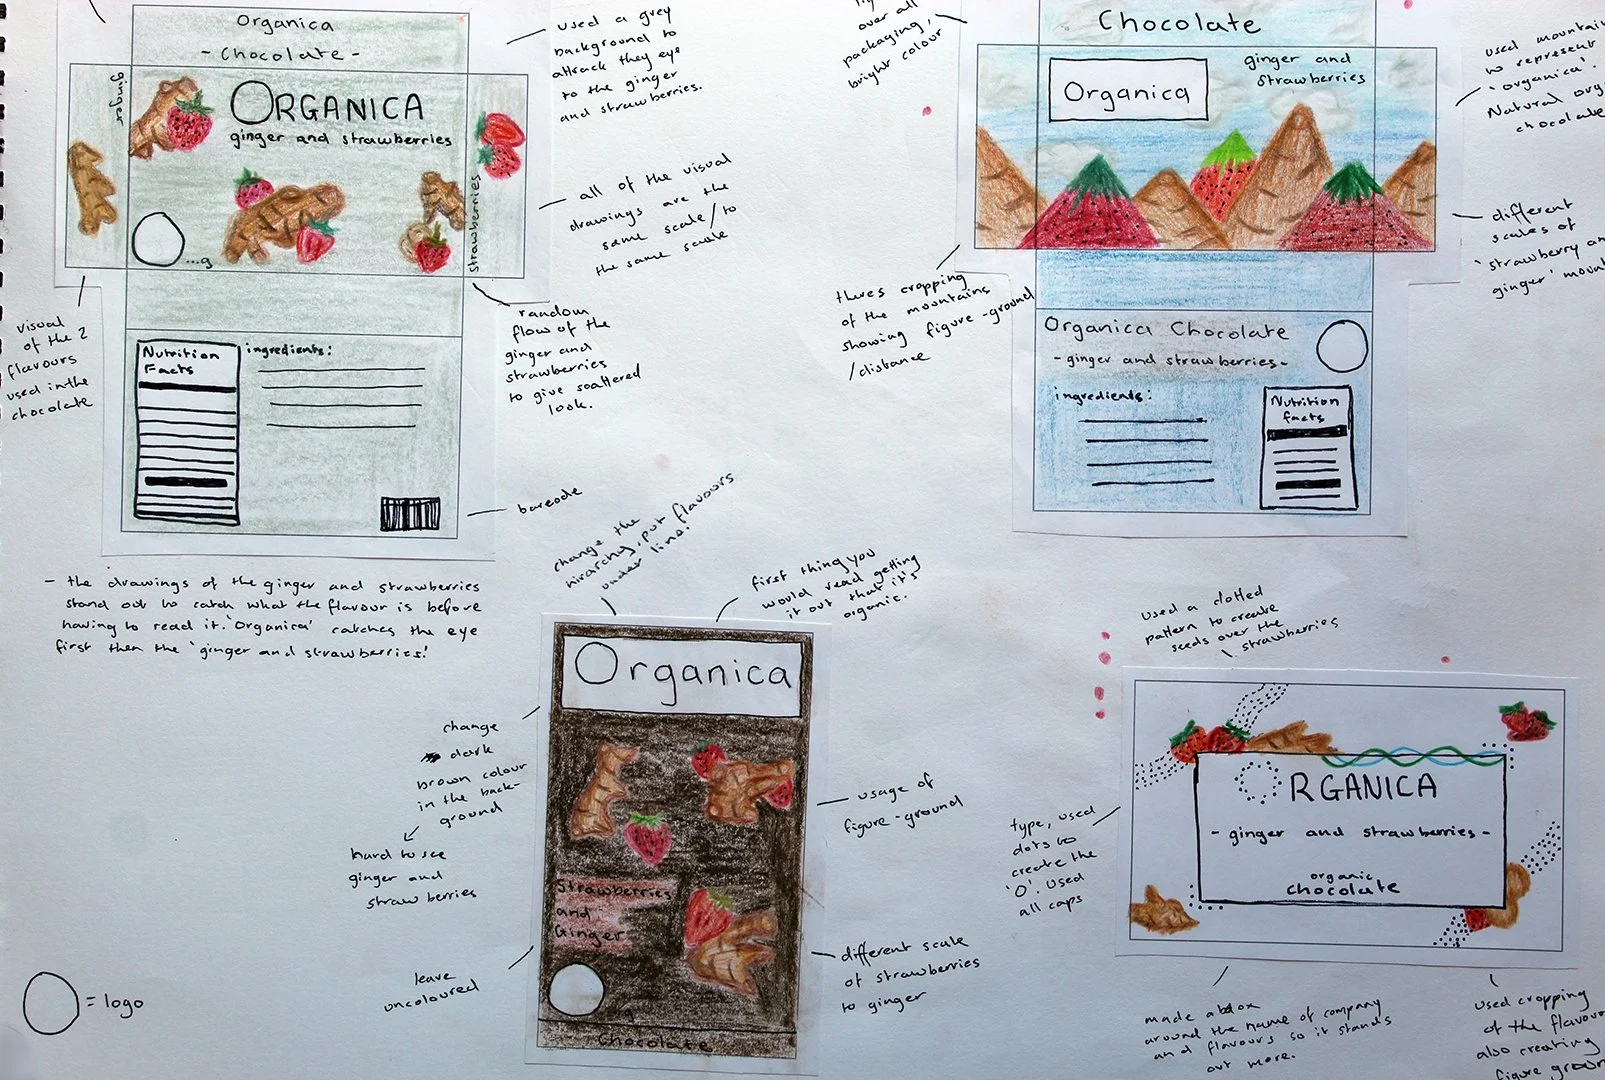 Organica
- Chocolate -
ginger
ORGANICA
ginger and strawberries
strawberries
...g
Nutrition
Facts
ingredients:
used a grey
background to
attrack they eye
to the ginger
and strawberries.
all of the visual
drawings are the
same scale/to
the same scale
random
flow of the
ginger and
strawberries
to give scattered
look.
visual
of the 2
flavours
used in the
chocolate
barcode
- the drawings of the ginger and strawberries
stand out to catch what the flavour is before
having to read it. 'Organica' catches the eye
first then the 'ginger and strawberries'.
over all
packaging,
bright colour
Chocolate
Organica
ginger and
strawberries
used mountain
to represent
'organica'.
Natural org
chocolate
different
scales of
'strawberry an
ginger' mount
theres cropping
of the mountains
showing figure-ground
/distance
Organica Chocolate
- ginger and strawberries -
ingredients:
Nutrition
facts
change the
hirarchy, put flavours
under line!
first thing you
would read getting
it out that it's
organic.
Organica
Strawberries
and
Ginger
g
Chocolate
change
dark
brown colour
in the back-
ground
hard to see
ginger and
strawberries
leave
uncoloured
usage of
figure-ground
different scale
of strawberries
to ginger
= logo
used a dotted
pattern to create
seeds over the
strawberries
RGANICA
- ginger and strawberries -
organic
chocolate
type, used
dots to
create the
'O'. Used
all caps
made a box
around the name of company
and flavours so it stands
out more.
used cropping
of the flavour
also creating
figure ground